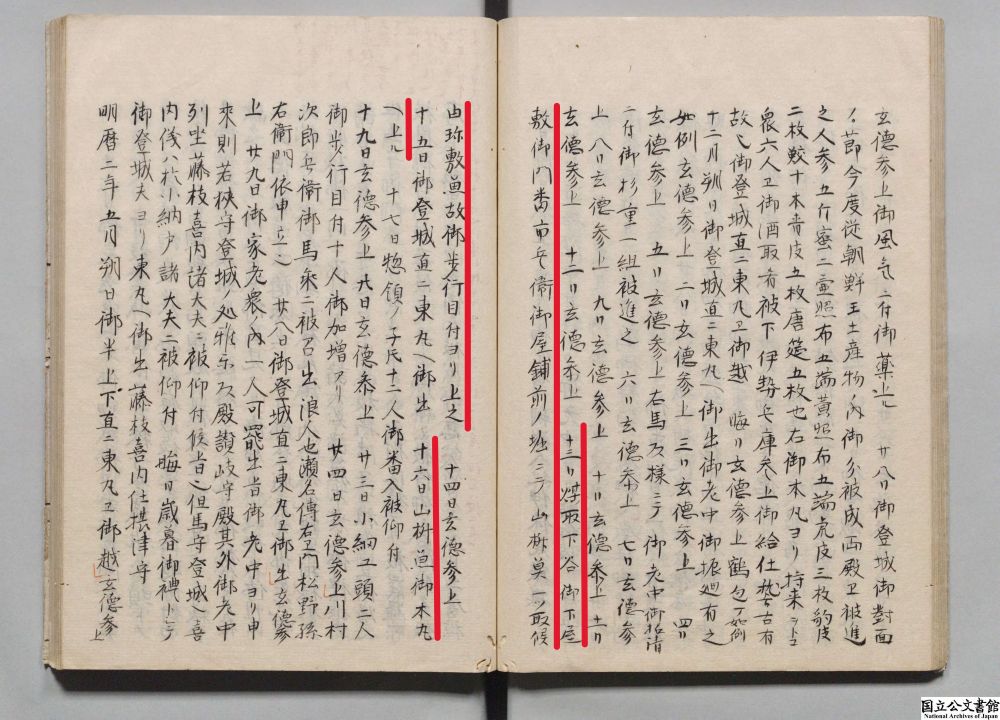 玄德参上御風気ニ付御薬上ル 廿八日御登城御對面
ノ節今度従朝鮮王土産物ノ内御分被成両殿ヱ被進
之人参五斤蜜二壷照布五端黄照布五端虎皮三枚豹皮
二枚鮫十本青皮五枚唐筵五枚也右御本丸ヨリ持来
衆六人ヱ御酒取肴被下伊勢兵庫参上御給仕
故ニ御登城直ニ東丸ヱ御越 晦日玄德参上鶴包丁如例
十二月朔日御登城直ニ東丸ヘ御出御老中御振廻有之
如例玄德参上 二日玄德参上 三日玄德参上 四日
玄德参上 五日玄德参上右馬頭様ニテ御老中御招請
ニ付御杉重一組被進之 六日玄德参上 七日玄德参
上 八日玄德参上 九日玄德参上 十日玄德参上 十一日
玄德参上 十二日玄德参上 十三日煤取下谷御下屋
敷御門番市兵衛御屋鋪前ノ堀ニテ山椒莫一ツ取候
由珎敷魚故御歩行目付ヨリ上之 十四日玄德参上
十五日御登城直ニ東丸ヘ御出 十六日山椒莫御本丸
ヘ上ル 十七日惣領ノ子共十二人御番入被仰付
十九日玄德参上 廿日玄德参上 廿三日小細工頭二人
御歩行目付十人御加増アリ 廿四日玄德参上川村
次郎兵衛御馬乘ニ被召出浪人也瀬名傳右衛門松野孫
右衛門依申立也 廿八日御登城直ニ東丸ヱ御出玄德参
上 廿九日御家老衆ノ内一人可罷出旨御老中ヨリ申
來則若狭守登城ノ処雅樂頭殿讃岐守殿其外御老中
列坐藤枝喜内諸大夫ニ被仰付候旨也但馬守登城ハ喜
内儀ハ於小納戸諸大夫ニ被仰付 晦日歳暮御禮トシテ
御登城夫ヨリ東丸ヘ御出藤枝喜内任摂津守
明暦二年五月朔日御半上下直ニ東丸ヱ御越玄德参上
国立公文書館
National Archives of Japan